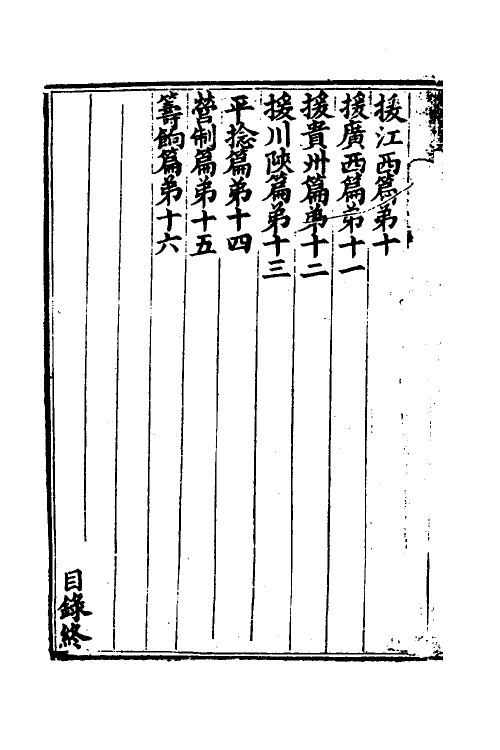 援江西篇第十
援廣西篇第十一
援貴州篇第十二
援川陝篇第十三
平捻篇第十四
營制篇第十五
籌餉篇第十六
目錄終